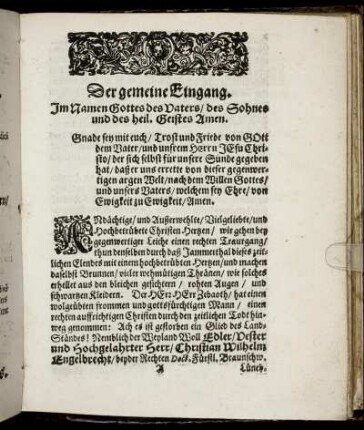 Der gemeine Eingang.
Im Namen Gottes des Vaters/ des Sohnes
und des heil. Geistes Amen.
Gnade sey mit euch/ Trost und Friede von GOtt
dem Vater/ und unsrem Herrn JEsu Chri-
sto/ der sich selbst für unsere Sünde gegeben
hat/ daß er uns errette von dieser gegenwer-
tigen argen Welt/ nach dem Willen Gottes/
und unsers Vaters/ welchem sey Ehre/ von
Ewigkeit zu Ewigkeit/ Amen.
ANdächtige/ und Außerwehlte/ Vielgeliebte/ und
Hochbetrübte Christen Hertzen/ wie gehen bey
gegenwertiger Leiche einen rechten Traurgang/
thun denselben durch daß Jammerthal dieses zeit-
lichen Elendes mit einem hochbetrübten Hertzen/ und machen
daselbst Brunnen/ vieler wehmütigen Thränen/ wie solches
erhellet aus den bleichen gesichtern/ rohten Augen/ und
schwartzen Kleidern. Der HErr HErr Zebaoth/ hat einen
wolgeübten frommen und gottsfürchtigen Mann/ einen
rechten auffrichtigen Christen durch den zeitlichen Todt hin-
weg genommen: Ach es ist gestorben ein Glied des Land-
Ständes! Nemblich der Weyland Woll Edler/ Vester
und Hochgelahrter Herr/ Christian Wilhelm
Engelbrecht/ beyder Rechten Doct. Fürstl. Braunschw.
A Lüneb.